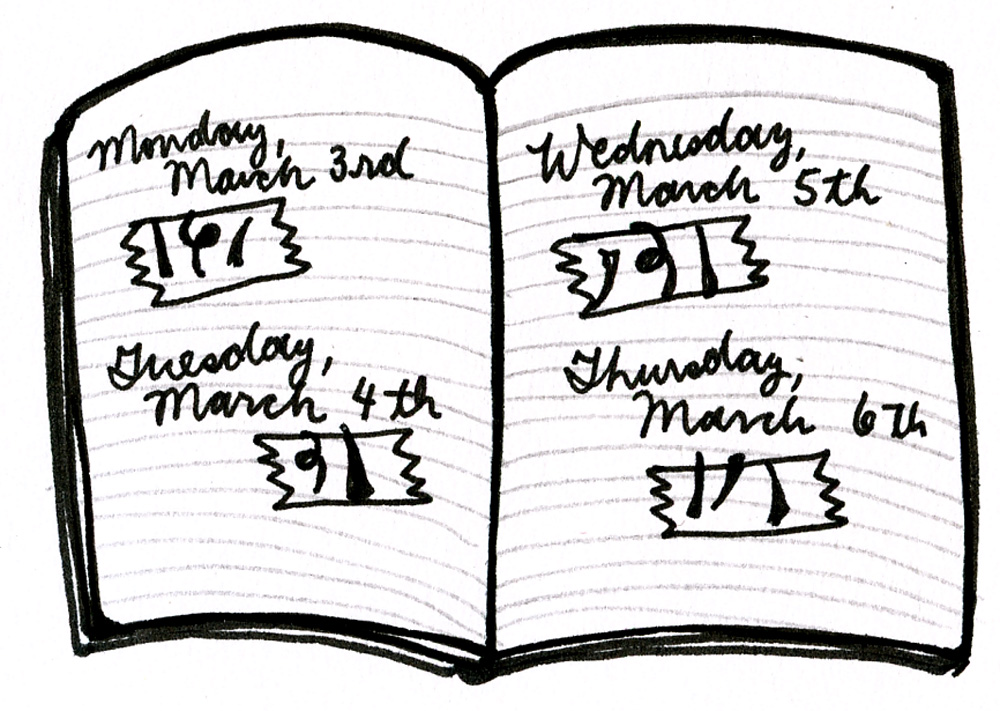 Monday,
March 3rd
Tuesday,
March 4th
Wednesday,
March 5th
Thursday,
March 6th